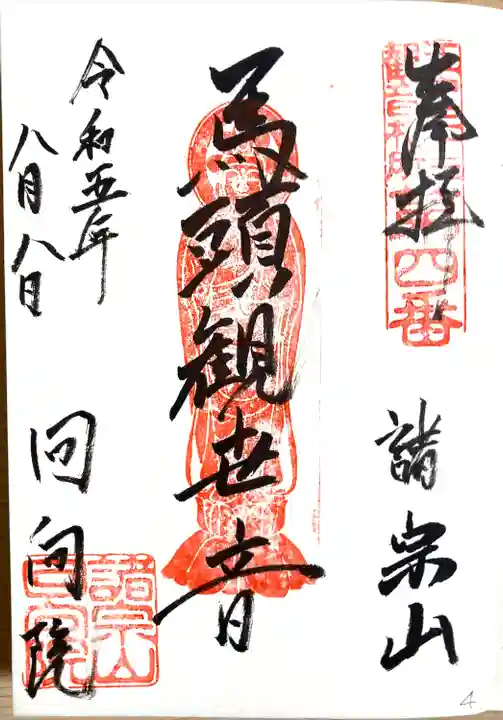 奉拝
四番
諸宗山
馬頭観世音
令和五年
八月八日
回向院
諸宗山
4